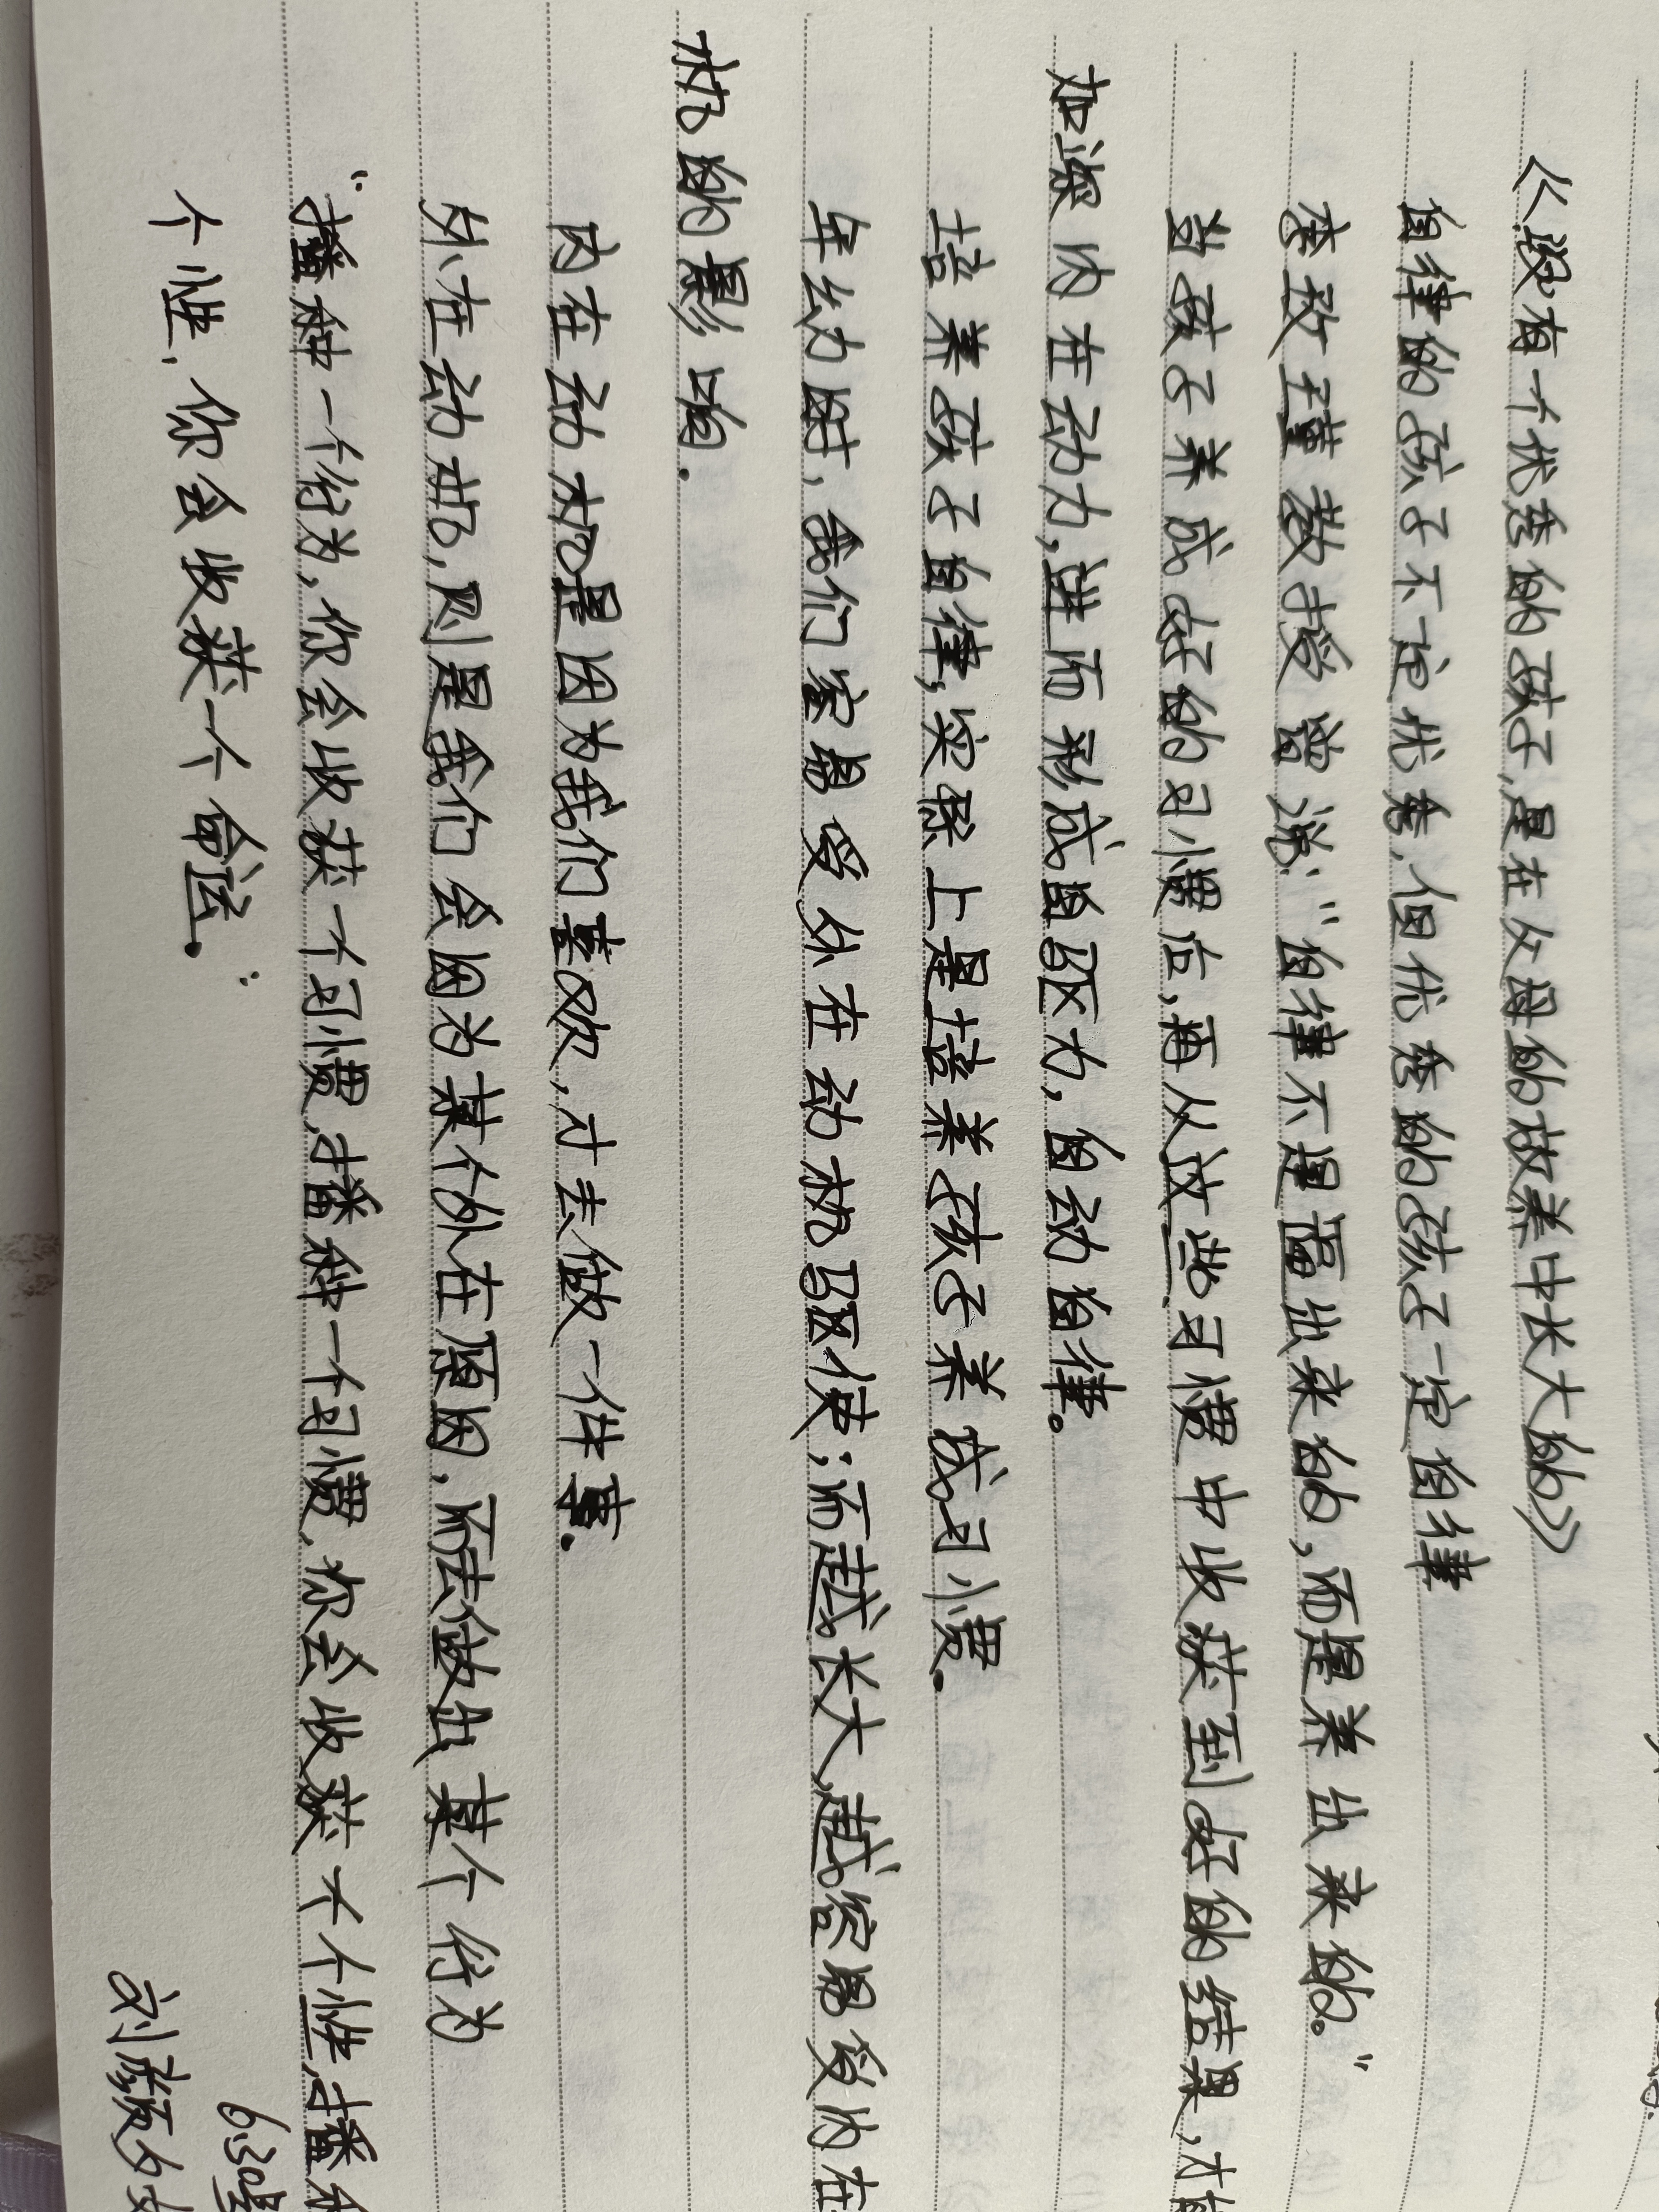 《没有一个优秀的孩子,是在父母的放养中长大的》
自律的孩子不一定优秀,但优秀的孩子一定自律
李玫瑾教授曾说:"自律不是逼出来的,而是养出来的。"
当孩子养成好的习惯后,再从这些习惯中收获到好的结果,才
加深内在动力,进而形成自驱力,自动自律。
培养孩子自律,实际上是培养孩子养成习惯。
年幼时,我们容易受外在动机驱使;而越长大,越容易受内在
机的影响.
内在动机是因为我们喜欢,才去做一件事.
外在动机,则是我们会因为某个外在原因,而去做出某个行为
"播种一个行为,你会收获一个习惯,播种一个习惯,你会收获一个个性,播
个性,你会收获一个命运."
6.30
刘颜